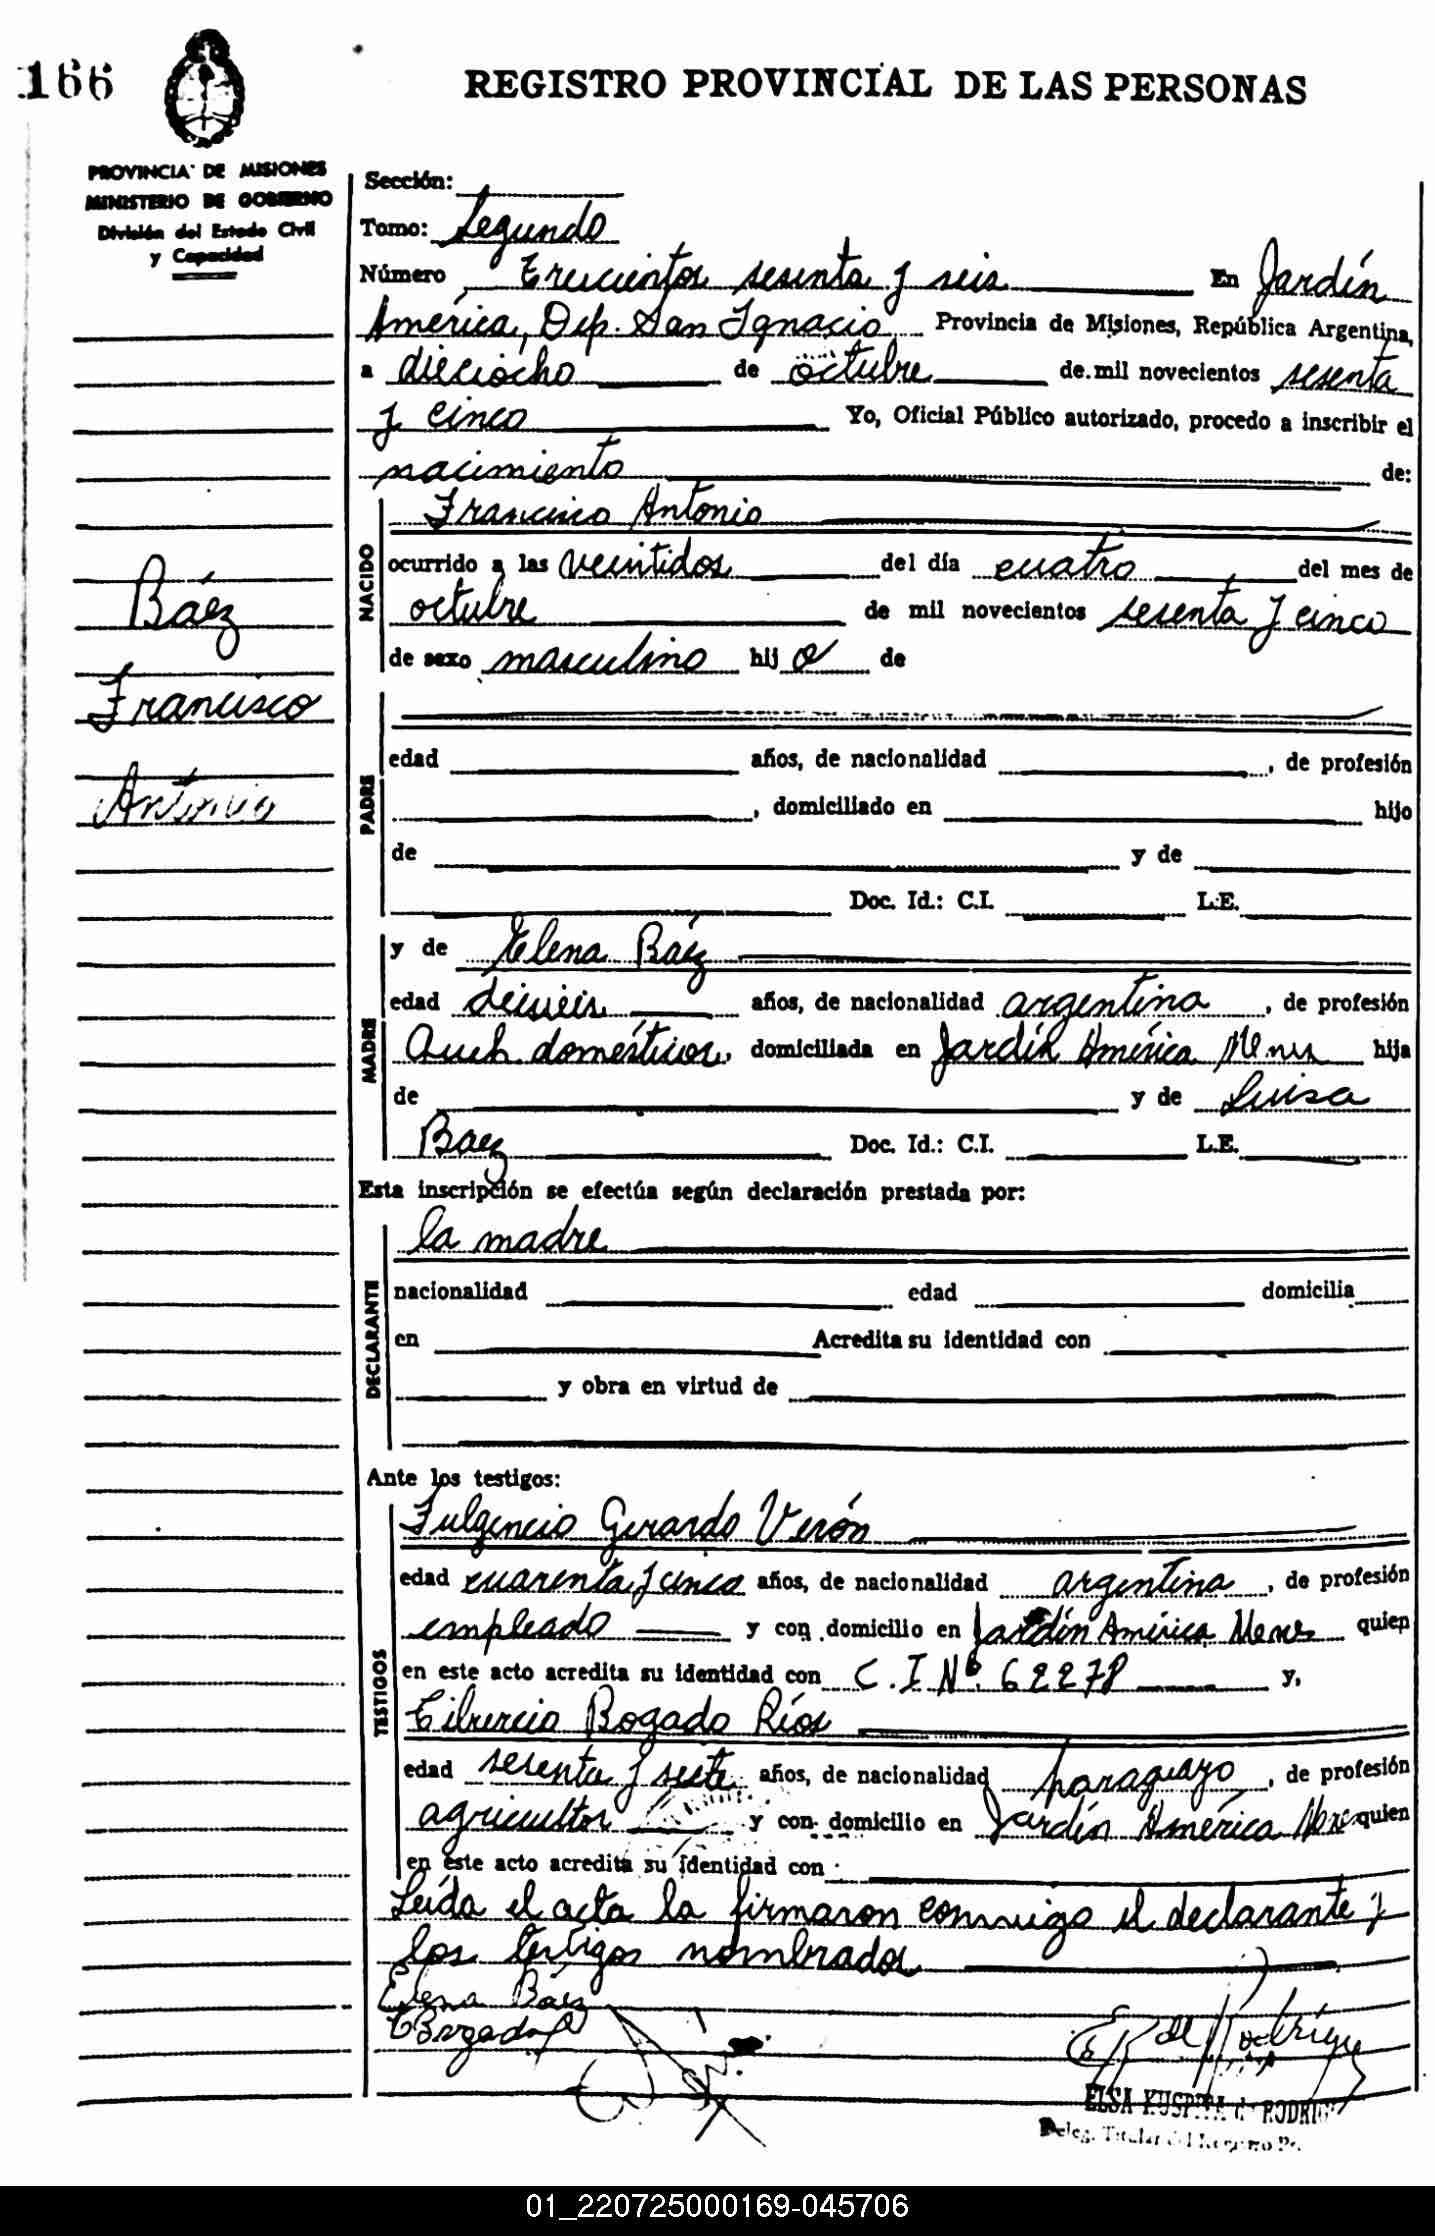 166
REGISTRO PROVINCIAL DE LAS PERSONAS
PROVINCIA DE MISIONES
MINISTERIO DE GOBIERNO
División del Estado Civil
y Capacidad
Sección:
Tomo: Segundo
Número Trescientos sesenta y seis En Jardín
América, Dep. San Ignacio Provincia de Misiones, República Argentina,
a dieciocho de octubre de mil novecientos sesenta
y cinco Yo, Oficial Público autorizado, procedo a inscribir el
nacimiento de:
Báez
Francisco
Antonio
NACIDO
Francisco Antonio
ocurrido a las veintidos del día cuatro del mes de
octubre de mil novecientos sesenta y cinco
de sexo masculino hij o de
PADRE
edad años, de nacionalidad , de profesión
, domiciliado en hijo
de y de
Doc. Id.: C.I. L.E.
MADRE
y de Elena Báez
edad deisieis años, de nacionalidad argentina , de profesión
Queh. domésticos, domiciliada en Jardín América Mnes hija
de y de Luisa
Baez Doc. Id.: C.I. L.E.
Esta inscripción se efectúa según declaración prestada por:
DECLARANTE
la madre
nacionalidad edad domicilia
en Acredita su identidad con
y obra en virtud de
Ante los testigos:
TESTIGOS
Fulgencio Gerardo Verón
edad cuarenta y cinco años, de nacionalidad argentina , de profesión
empleado y con domicilio en Jardín América Mnes quien
en este acto acredita su identidad con C.I Nº. 62278 y,
Tiburcio Bogado Ríos
edad sesenta y siete años, de nacionalidad paraguayo , de profesión
agricultor y con domicilio en Jardín América Mnes quien
en este acto acredita su identidad con
Leída el acta la firmaron conmigo el declarante y
los testigos nombrados
Elena Báez
TBogado
ELSA KUSPITA de RODRIG
Deleg. Titular del Registro P.
01_220725000169-045706